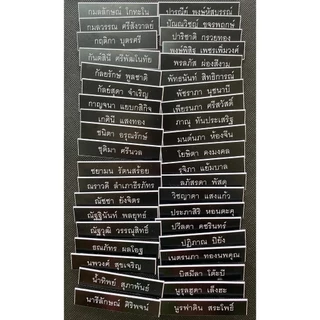 กมลลักษณ์ โกทะโน
กมลวรรณ ศรีสังวาลย์
กฤติกา บุตรศรี
กันต์สินี ศรีพิมโนทัย
กัลยรักษ์ พูลชาติ
กัลย์สุดา จำเริญ
กาญจนา แยบกสิกิจ
เกตินี แสงทอง
ชนิดา อรุณรักษ์
ชุติมา ศรีนวล
ชยามน รัตนสร้อย
ณราวดี ลำเภาธีรภัทร
ณัชชา ยังจิตร
ณัฐธินันท์ พลยุทธ์
ณัฐวุฒิ วรรณสิทธิ์
ธณภัทร ผลโอฐ
นพวงศ์ สุขเจริญ
น้ำทิพย์ สุภาพันธ์
นารีลักษณ์ ศิริพจน์
ปารณีย์ พงษ์พัสบรรณ์
ปัณณวิชญ์ ขจรพฤกษ์
ปาริชาติ กรวยทอง
พงษ์พิสิฐ เพชรเพิ่มวงศ์
พรลภัส ผ่องสีงาม
พัทธนันท์ สิทธิการณ์
พัชราภา นุชนาบี
เพียรนภา ศรีสวัสดิ์
ภาณุ ทันประเสริฐ
มนต์นภา ห้องจีน
โยษิตา คงมงคล
รุจิภา แย้มบาล
ลภัสรดา พัสดุ
วิชญาดา แสงแก้ว
ประภาสิริ หอนตะคุ
ปวีลดา คชรินทร์
ปฏิภาณ ปิยัง
เนตรนภา ทองนพคุณ
บิสมีลา โต๊ะบี
นุรุลฮูดา เล็งฮะ
นูรฟาดิน สระโพธิ์